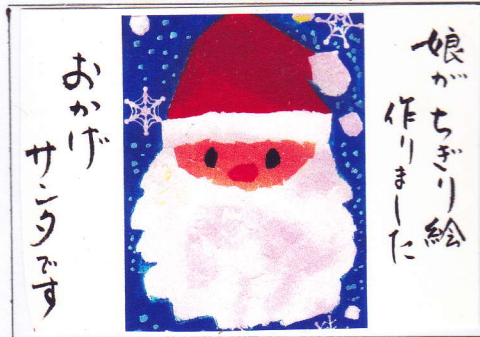 娘がちぎり絵
作りました
おかげ
サンタです